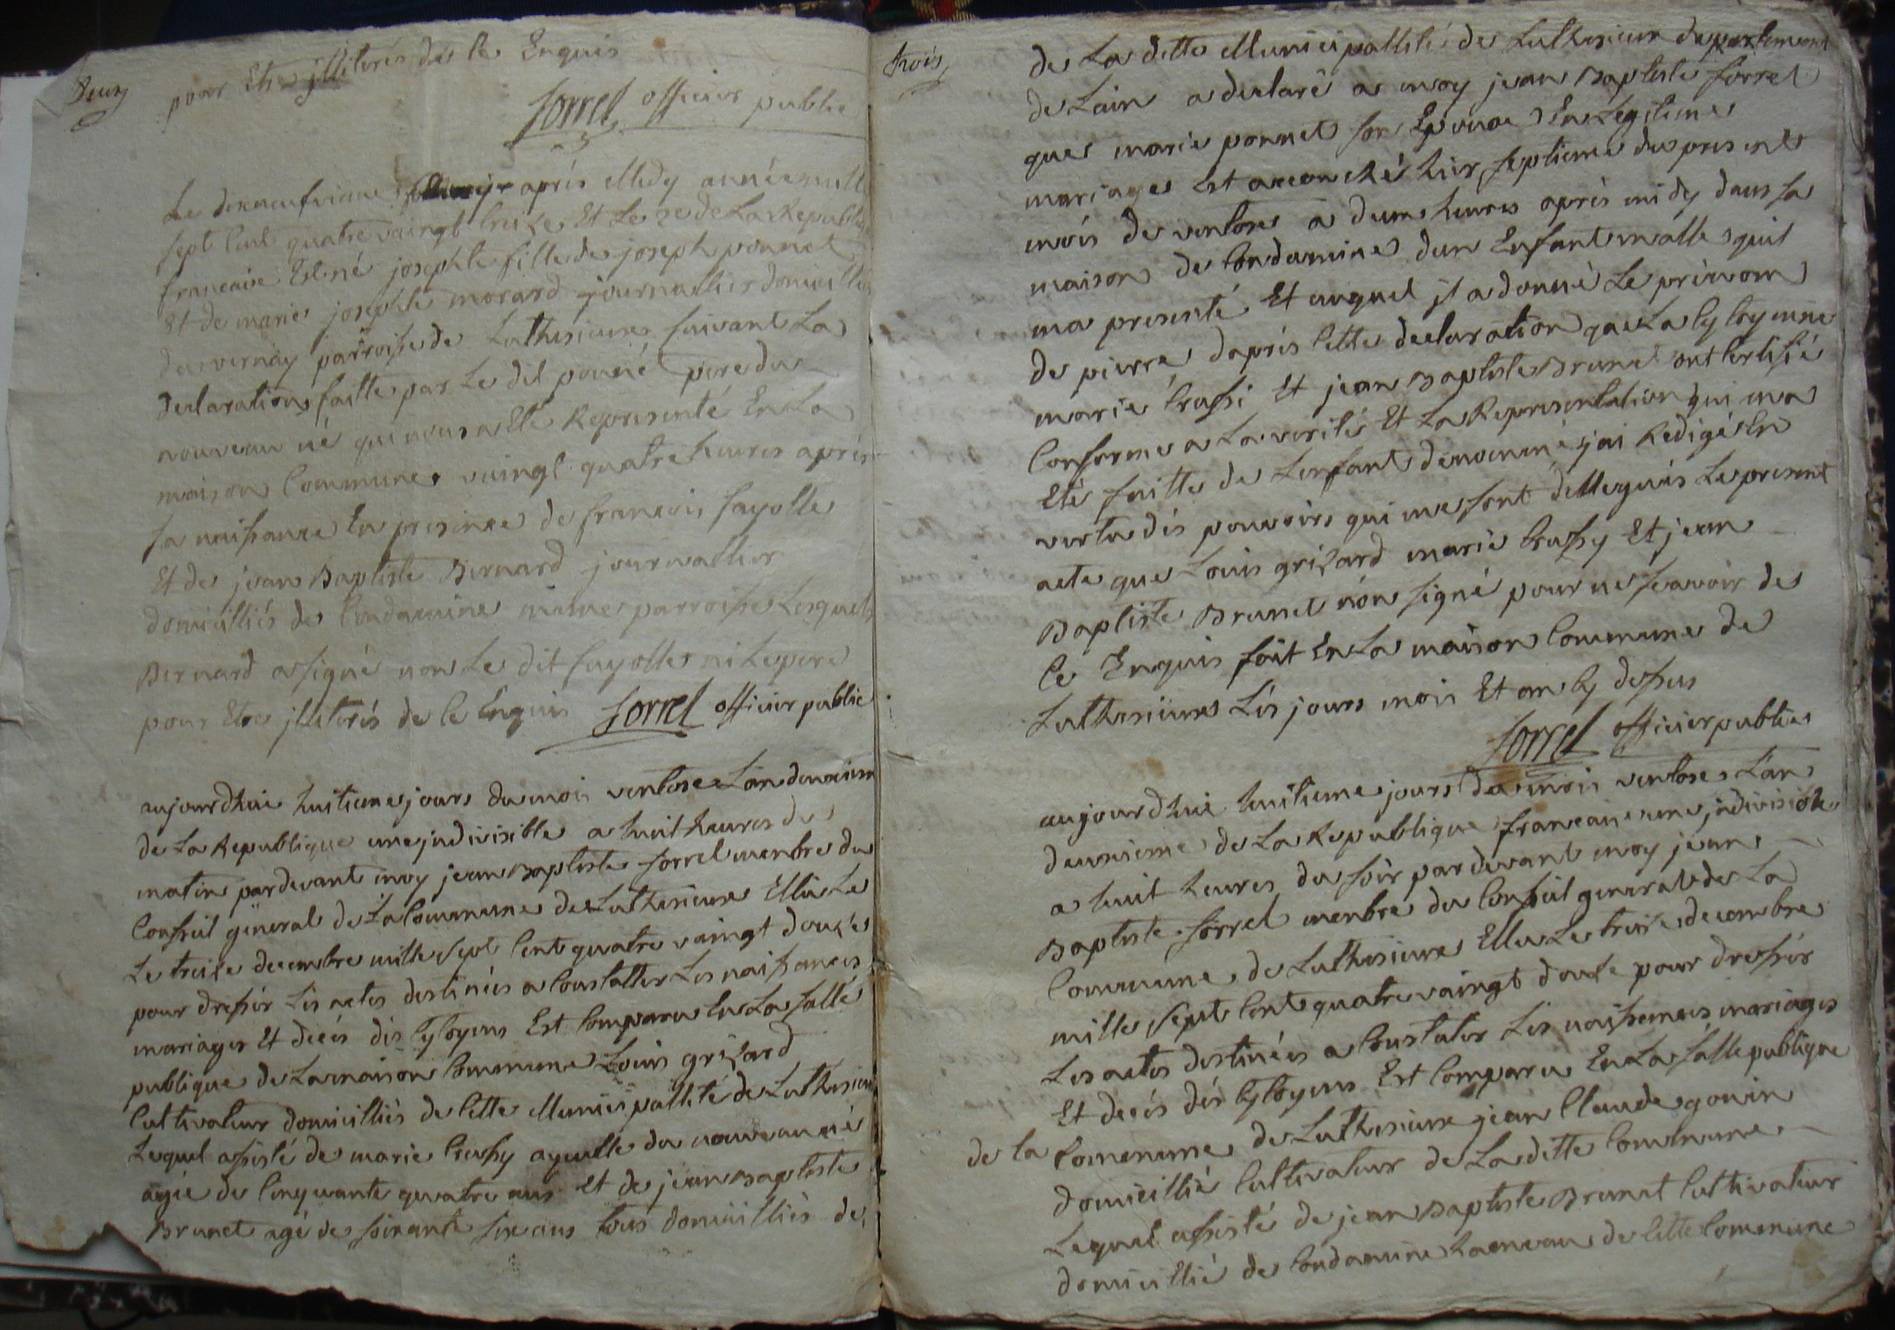 Deux
pour Etre jlliterés de le Enquis
Sorrel officier public
Le dixneufvieme apres Midy année mille
sept Cent quatre vaingt treize Et Le 2e de La Republique
francaise Est né josephte fille de joseph ponnet
Et de marie josephte morard journallier domicillié
du vernay parroisse de Luthesieux suivant La
declaration faitte par Le dit ponné pere du
nouveau né qui nous a Eté Représenté En La
maison Commune vaingt quatre heures apres
sa naissance En presence de francois fayolle
Et de jean Baptiste Bernard journallier
domicilliés de Condamine même parroisse Lesquels
Bernard a signé non Le dit fayolle ni Le pere
pour Etre jlliterés de le Enquis Sorrel officier public
aujourdhui huitieme jours du mois ventose Lan deuxieme
de La Republique une jndivisible a huit heures de
matin pardevant moy jean Baptiste Sorrel menbre du
Conseil géneral de La Commune de Luthesieux Ellu Le
Le treise decembre mille sept Cent quatre vaingt douze
pour dresser Les actes destinées a Constatter Les naissances
mariages Et decés dés Cytoyens Est Comparu En La salle
publique de La maison Commune Louis grizard
Cultivateur domicilliés de Cette Municipallité de Luthesieux
Lequel assisté de marie Crassy ayeulle du nouveau né
agée de Cinquante quatre ans Et de jean Baptiste
Brunet agé de soixante six ans tous domicilliés de
trois
de La ditte Municipallité de Luthesieux departement
de Lain a declaré a moy jean Baptiste Sorrel
que marie ponnet son Epouse En Légitime
mariage Est accouché hier septieme du present
mois de ventose a deux heures apres midy dans sa
maison de Condamine dun Enfant malle quil
ma presenté Et auquel jl a donné Le prénom
de pierre dapres Cette declaration que La Cytoyenne
marie Crassi Et jean Baptiste Brunet ont Certifié
Conforme a La verité Et La Representation qui ma
Eté faitte de Lenfant denommé jai Redigé En
vertu dés pouvoirs qui me sont dellegués Le present
acte que Louis grizard marie Crassy Et jean
Baptiste Brunet nón signé pour ne scavoir de
Ce Enquis fait En La maison Commune de
Luthesieux Lés jours mois Et an Cy dessus
Sorrel officier public
aujourdhui huitieme jours du mois ventose Lan
deuxieme de La Republique francaise une jndivisible
a huit heures du soir pardevant moy jean
Baptiste Sorrel menbre du Conseil general de La
Commune de Luthesieux Ellu Le treise decembre
mille sept Cent quatre vaingt douze pour dresser
Les actes destinées a Constater Les naissances mariages
Et decés dés Cytoyens Est Comparu En La salle publique
de la Commune de Luthesieux jean Claude gonin
domicillié Cultivateur de La ditte Commune
Lequel assisté de jean Baptiste Brunet Cultivateur
domicillié de Condamine hameau de Cette Commune